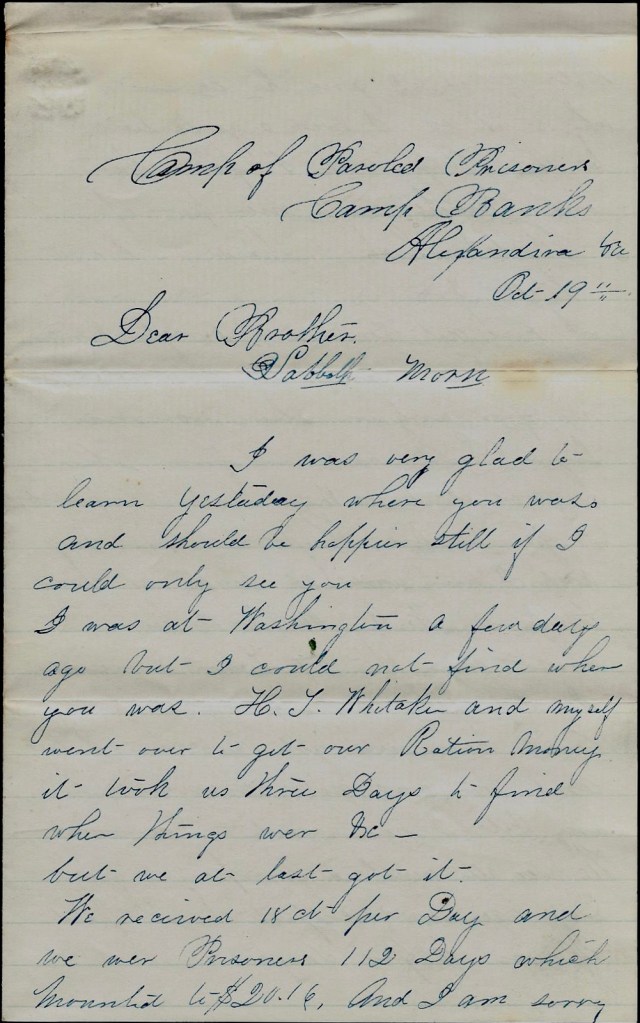 Camp of Paroled Prisoners
Camp Banks
Alexandira Va
Oct 19"
Dear Brother.
Sabbath Morn
I was very glad to
learn yestaday where you was.
and should be happier still if I
could only see you
I was at Washington a few days
ago but I could not find wher
you was. H. T. Whitaker and myself
went over to get our Ration Money
it took us three Days to find
wher things wer &c —
but we at last got it.
We recieved 18 ct per Day and
we wer Prisoners 112 Days which
Mounted to $20.16, And I am sorry